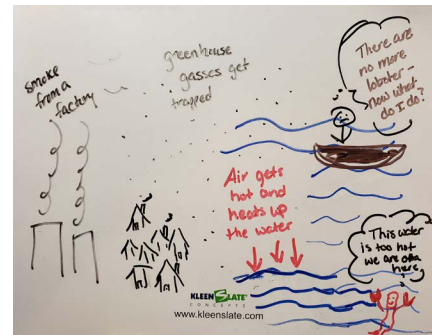 smoke
from a
factory
greenhouse
gasses get
trapped
There are
no more
lobster -
now what
do I do?
Air gets
hot and
heats up
the water
This water
is too hot
we are outta
here
KLEENSLATE
CONCEPTS
www.kleenslate.com